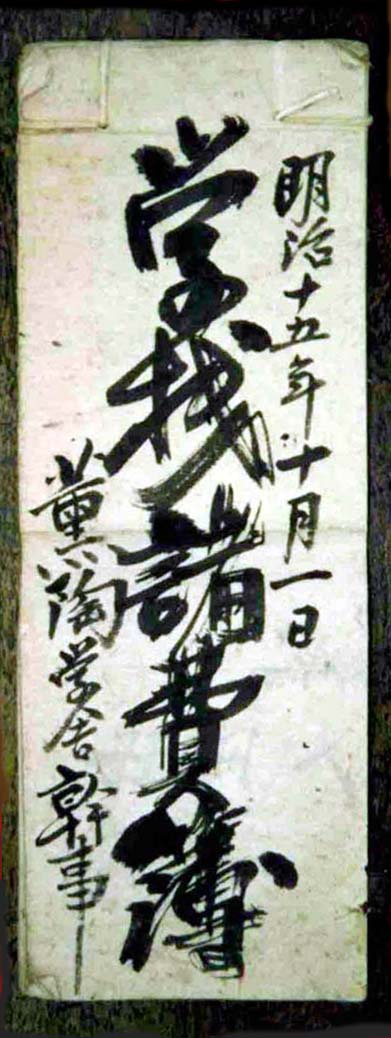 明治十五年十月一日
学校諸費簿
薫陶学舎幹事